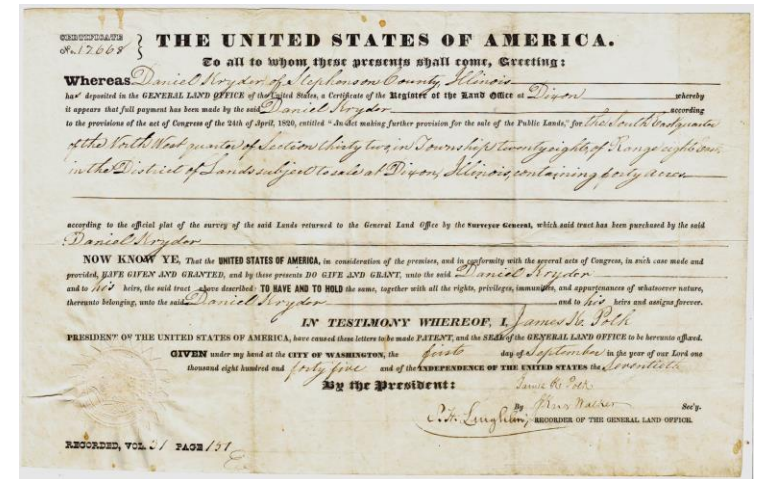 CERTIFICATE
No. 12668
THE UNITED STATES OF AMERICA.
To all to whom these presents shall come, Greeting:
Whereas Daniel Kryder, of Stephenson County, Illinois
has deposited in the GENERAL LAND OFFICE of the United States, a Certificate of the Register of the Land Office at Dixon whereby
it appears that full payment has been made by the said Daniel Kryder according
to the provisions of the act of Congress of the 24th of April, 1820, entitled "An act making further provision for the sale of the Public Lands," for the South East quarter
of the North West quarter of Section thirty two, in Township twenty eight, of Range eight East,
in the District of Lands subject to sale at Dixon, Illinois, containing forty acres
according to the official plat of the survey of the said Lands returned to the General Land Office by the Surveyor General, which said tract has been purchased by the said
Daniel Kryder
NOW KNOW YE, That the UNITED STATES OF AMERICA, in consideration of the premises, and in conformity with the several acts of Congress, in such case made and
provided, HAVE GIVEN AND GRANTED, and by these presents DO GIVE AND GRANT, unto the said Daniel Kryder
and to his heirs, the said tract above described: TO HAVE AND TO HOLD the same, together with all the rights, privileges, immunities, and appurtenances of whatsoever nature,
thereunto belonging, unto the said Daniel Kryder and to his heirs and assigns forever.
IN TESTIMONY WHEREOF, I, James K. Polk
PRESIDENT OF THE UNITED STATES OF AMERICA, have caused these letters to be made PATENT, and the SEAL of the GENERAL LAND OFFICE to be hereunto affixed.
GIVEN under my hand at the CITY OF WASHINGTON, the first day of September in the year of our Lord one
thousand eight hundred and forty five and of the INDEPENDENCE OF THE UNITED STATES the Seventieth
By the President: James K. Polk
By Walker Sec'y.
S. H. Laughlin, RECORDER OF THE GENERAL LAND OFFICE.
RECORDED, VOL. 31 PAGE 151